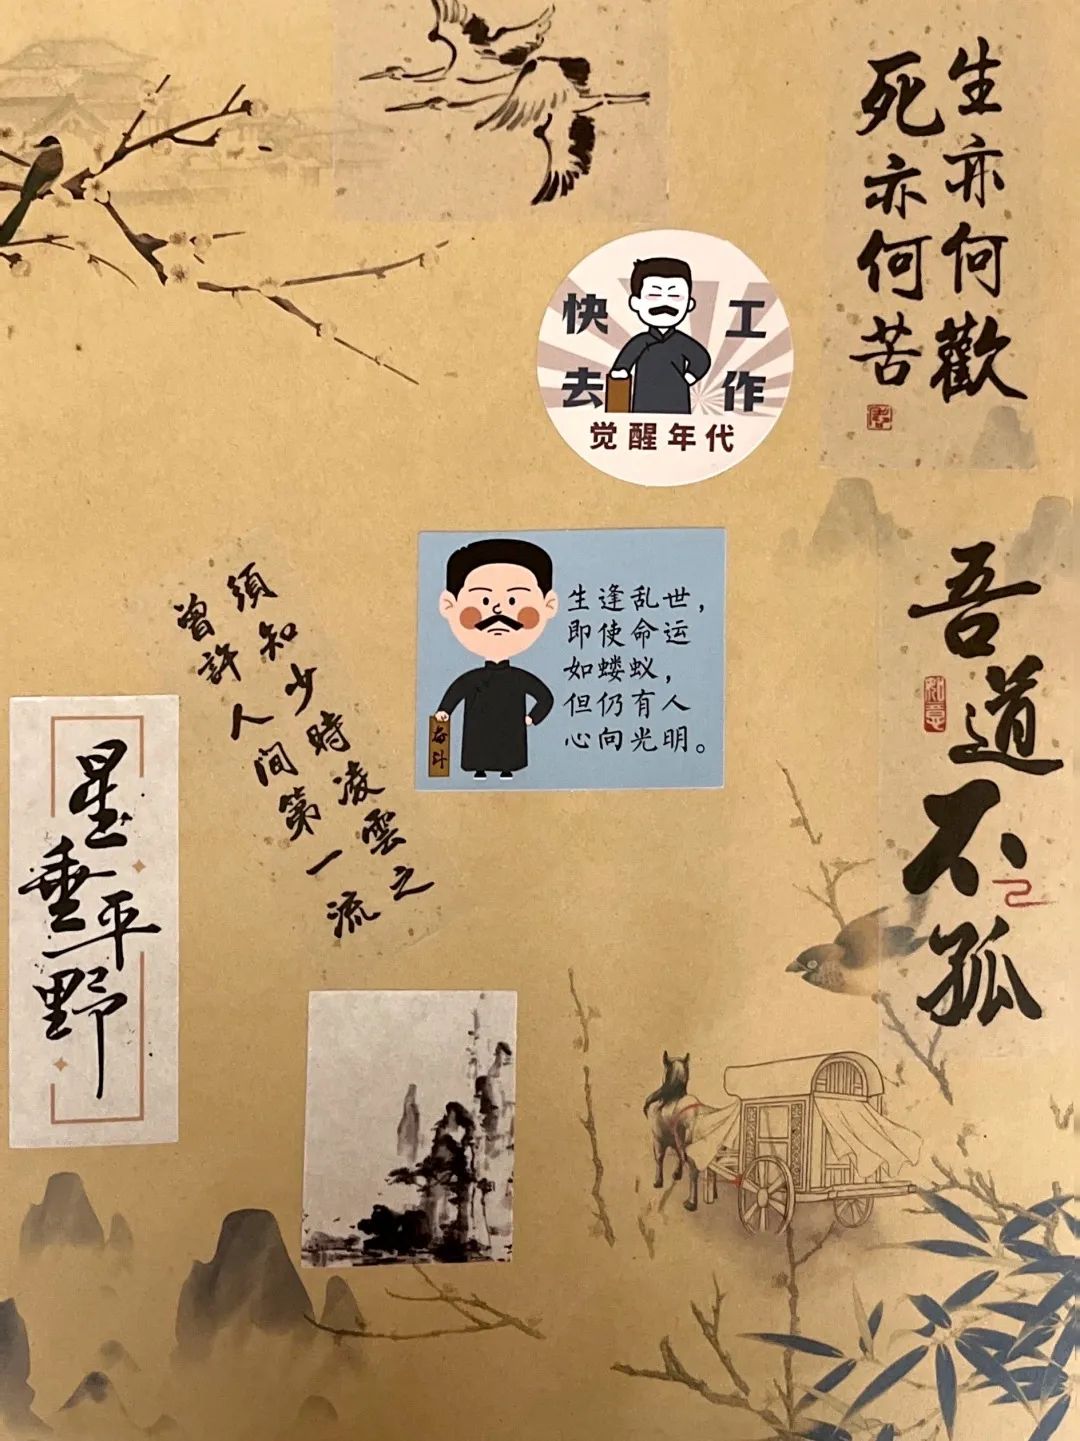 生亦何歡
死亦何苦
快去
工作
觉醒年代
生逢乱世，
即使命运
如蝼蚁，
但仍有人
心向光明。
奋斗
吾道不孤
須知少時凌雲之
曾許人間第一流
星垂平野